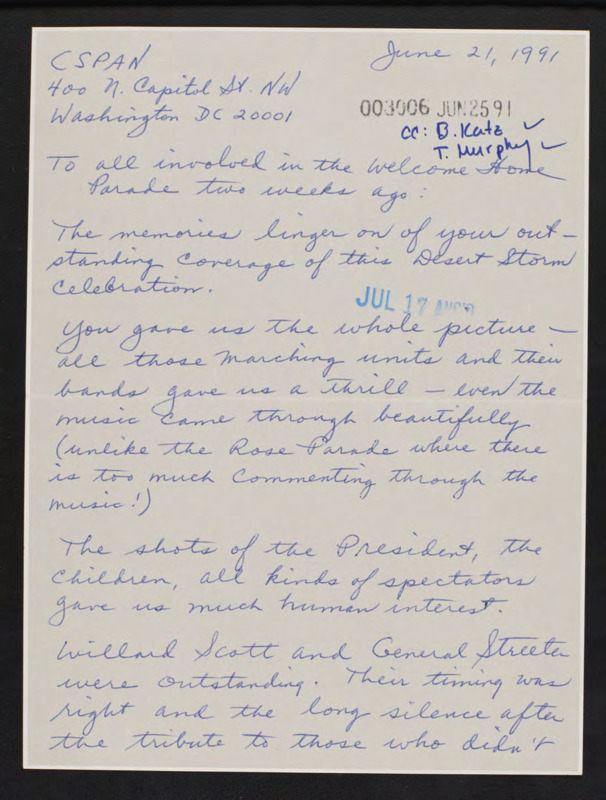 CSPAN
June 21, 1991
400 N. Capitol St. NW
Washington DC 20001
003006 JUN 25 91
cc: B. Katz ✓
T. Murphy ✓
To all involved in the Welcome Home
Parade two weeks ago:
The memories linger on of your out-
standing coverage of this Desert Storm
Celebration.
JUL 17
You gave us the whole picture —
all those marching units and their
bands gave us a thrill — even the
music came through beautifully
(unlike the Rose Parade where there
is too much commenting through the
music!)
The shots of the President, the
children, all kinds of spectators
gave us much human interest.
Willard Scott and General Streeter
were outstanding. Their timing was
right and the long silence after
the tribute to those who didn't